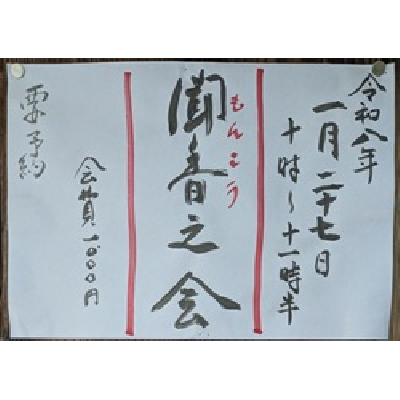 令和八年
一月二十七日
十時～十一時半
もんこう
聞香之会
会費一〇〇〇円
要予約